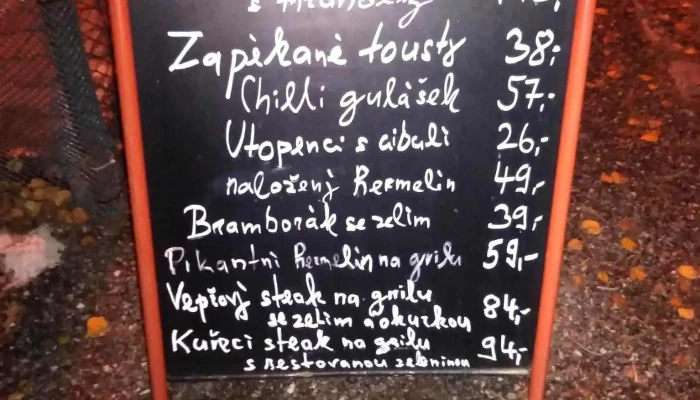 s hranolky
Zapékané tousty 38,-
Chilli gulášek 57,-
Utopenci s cibulí 26,-
naložený hermelín 49,-
Bramborák se zelím 39,-
Pikantní hermelín na grilu 59,-
Vepřový steak na grilu
se zelím a okurkou 84,-
Kuřecí steak na grilu 94,-
s restovanou zeleninou